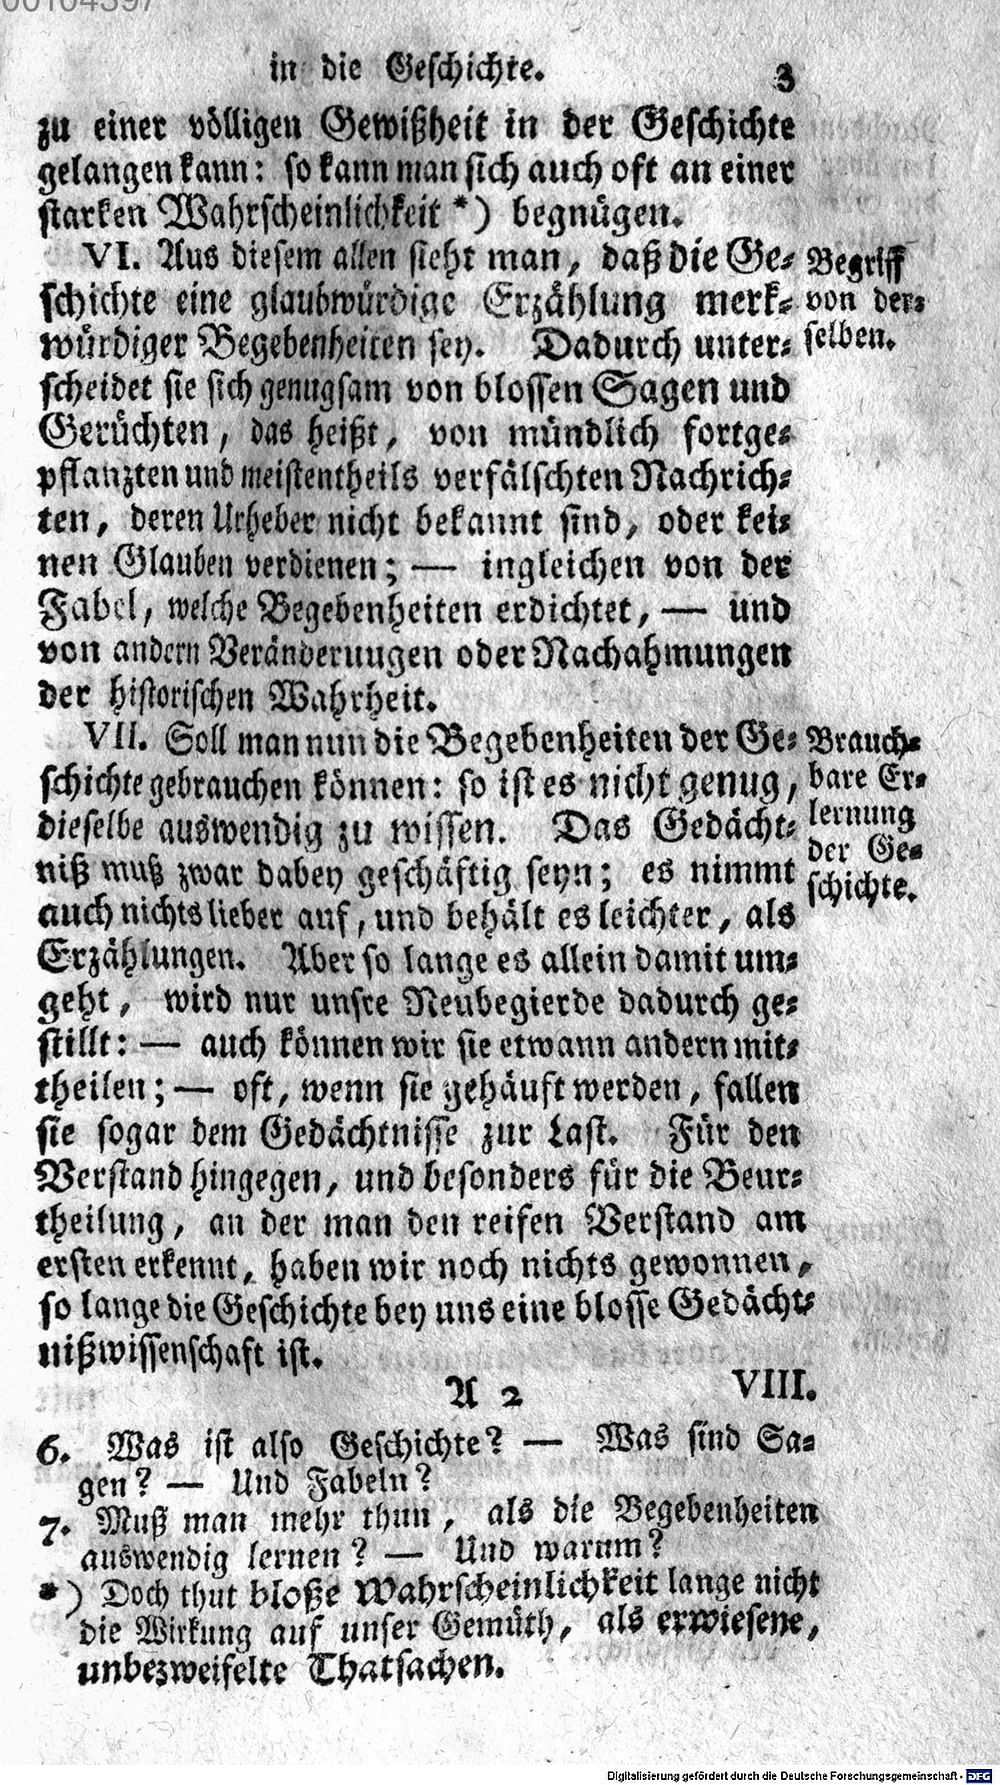 00104397
in die Geschichte. 3
zu einer völligen Gewißheit in der Geschichte
gelangen kann: so kann man sich auch oft an einer
starken Wahrscheinlichkeit *) begnügen.
VI. Aus diesem allen sieht man, daß die Ge-
schichte eine glaubwürdige Erzählung merk-
würdiger Begebenheiten sey. Dadurch unter-
scheidet sie sich genugsam von blossen Sagen und
Gerüchten, das heißt, von mündlich fortge-
pflanzten und meistentheils verfälschten Nachrich-
ten, deren Urheber nicht bekannt sind, oder kei-
nen Glauben verdienen; — ingleichen von der
Fabel, welche Begebenheiten erdichtet, — und
von andern Veränderungen oder Nachahmungen
der historischen Wahrheit.
Begriff
von der-
selben.
VII. Soll man nun die Begebenheiten der Ge-
schichte gebrauchen können: so ist es nicht genug,
dieselbe auswendig zu wissen. Das Gedächt-
niß muß zwar dabey geschäftig seyn; es nimmt
auch nichts lieber auf, und behält es leichter, als
Erzählungen. Aber so lange es allein damit um-
geht, wird nur unsre Neubegierde dadurch ge-
stillt: — auch können wir sie etwann andern mit-
theilen; — oft, wenn sie gehäuft werden, fallen
sie sogar dem Gedächtnisse zur Last. Für den
Verstand hingegen, und besonders für die Beur-
theilung, an der man den reifen Verstand am
ersten erkennt, haben wir noch nichts gewonnen,
so lange die Geschichte bey uns eine blosse Gedächt-
nißwissenschaft ist.
Brauch-
bare Er-
lernung
der Ge-
schichte.
A 2 VIII.
6. Was ist also Geschichte? — Was sind Sa-
gen? — Und Fabeln?
7. Muß man mehr thun, als die Begebenheiten
auswendig lernen? — Und warum?
*) Doch thut bloße Wahrscheinlichkeit lange nicht
die Wirkung auf unser Gemüth, als erwiesene,
unbezweifelte Thatsachen.
Digitalisierung gefördert durch die Deutsche Forschungsgemeinschaft - DFG